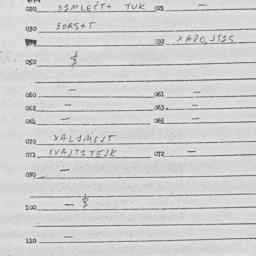 020 DIMLEČT+ TUK 021 —
030 BORS+T
032 XARO, JSIS
050 $
060 — 061 —
062 — 063 —
064 — 065 —
070 XALIMEJT
071 CVAJTITEJK 072 —
090 —
100 — $
110 —